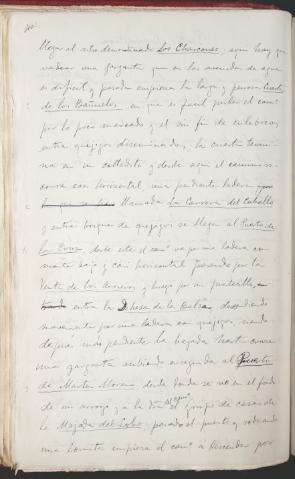 llegar al sitio denominado Los Charcones: aquí hay que
vadear una garganta que en las avenidas de agua
es difícil y pasada empieza la larga y penosa Cuesta
de los Bañuelos, en que es fácil perder el camº
por lo poco marcado y el sin fin de culebreos
entre quejigos diseminados; la cuesta termi-
na en un colladito y desde aquí el camino re-
corre casi horizontal, una pendiente ladera
llamada La Carrera del Caballo
y entre bosque de quejigos se llega al Puerto de
la Cruz; desde este el camº va por una ladera con
monte bajo y casi horizontal pasando por la
Venta de los Arrieros y luego por un
entra la Dehesa de la Balsa, descendiendo
nuevamente por una ladera con quejigos, siendo
después más pendiente la bajada hasta cruzar
una garganta subiendo enseguida al Puerto
de Martín Moreno desde donde se ve en el fondo
de un arroyo y a la dra algún grupo de casas de
la Majada del Lobo; pasado el puerto y rodeando
una lomita empieza el camº a descender por